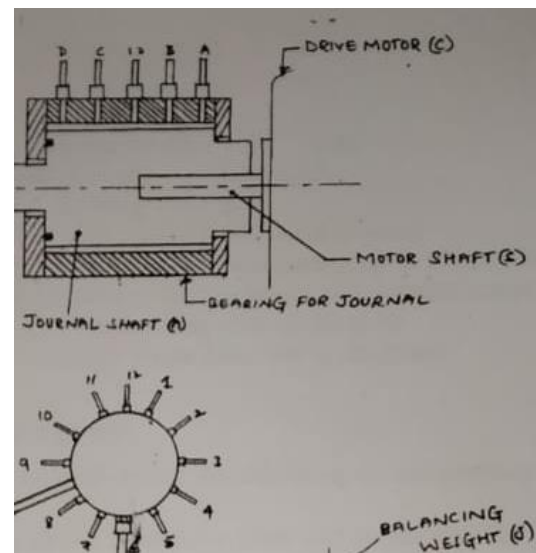 D C 12 B A
DRIVE MOTOR (C)
MOTOR SHAFT (S)
BEARING FOR JOURNAL
JOURNAL SHAFT (A)
11 12 1
10 2
9 3
8 4
7 5
BALANCING
WEIGHT (J)